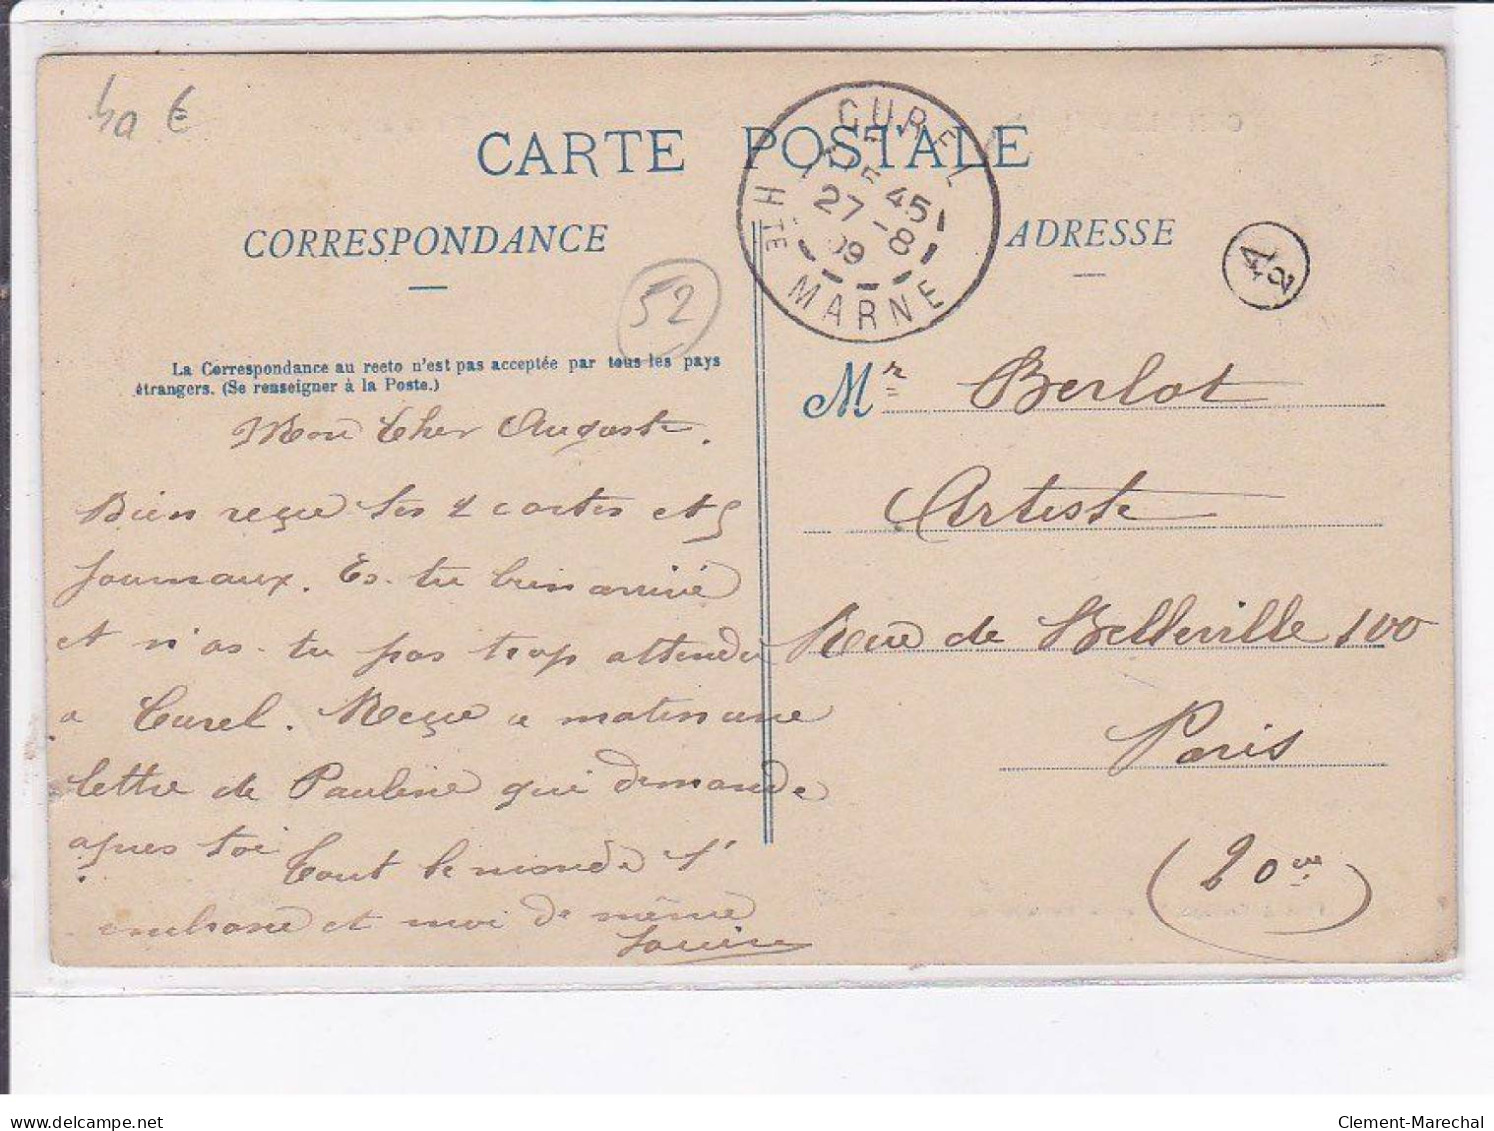 40 €
CARTE POSTALE
CORRESPONDANCE
ADRESSE
CUREL
45
27 -8
09
HTE MARNE
A2
52
La Correspondance au recto n'est pas acceptée par tous les pays
étrangers. (Se renseigner à la Poste.)
Mon Cher Auguste.
Bien reçue tes 2 cartes et
Journaux. Es-tu bien arrivé
et n'as-tu pas trop attendu
a Curel. Reçue ce matin une
lettre de Pauline qui demande
apres toi
Tout le monde t'
embrasse et moi de même
Louise
Mr Berlot
Artiste
Rue de Belleville 100
Paris
(20me)
delcampe.net
Clement-Marechal